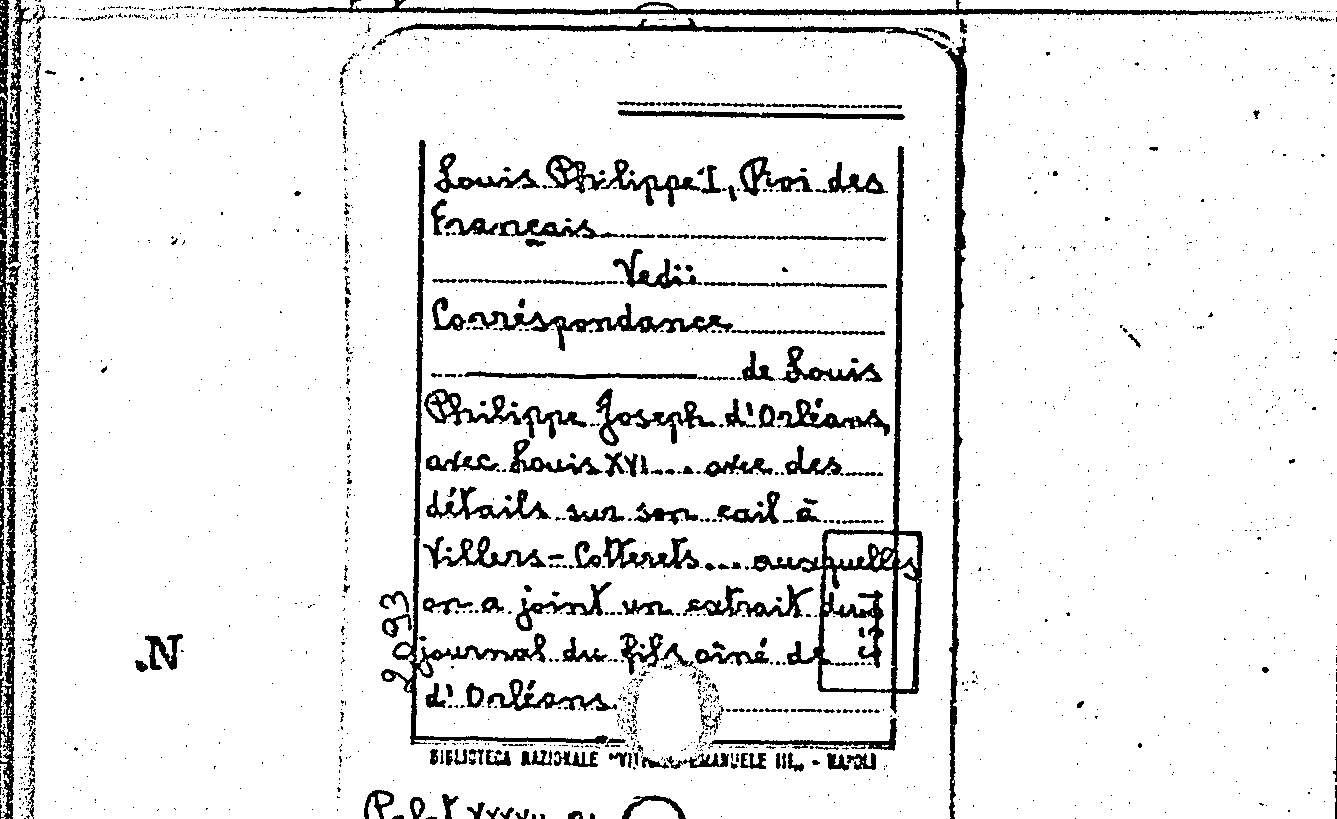 Louis Philippe I, Roi des
Français
Vedi:
Corréspondance
de Louis
Philippe Joseph d'Orléans,
avec Louis XVI... avec des
détails sur son exil à
Villers-Cotterets... auxquelles
on a joint un extrait du
journal du fils aîné de
d'Orléans.
BIBLIOTECA NAZIONALE "VITTORIO EMANUELE III" - NAPOLI
.N